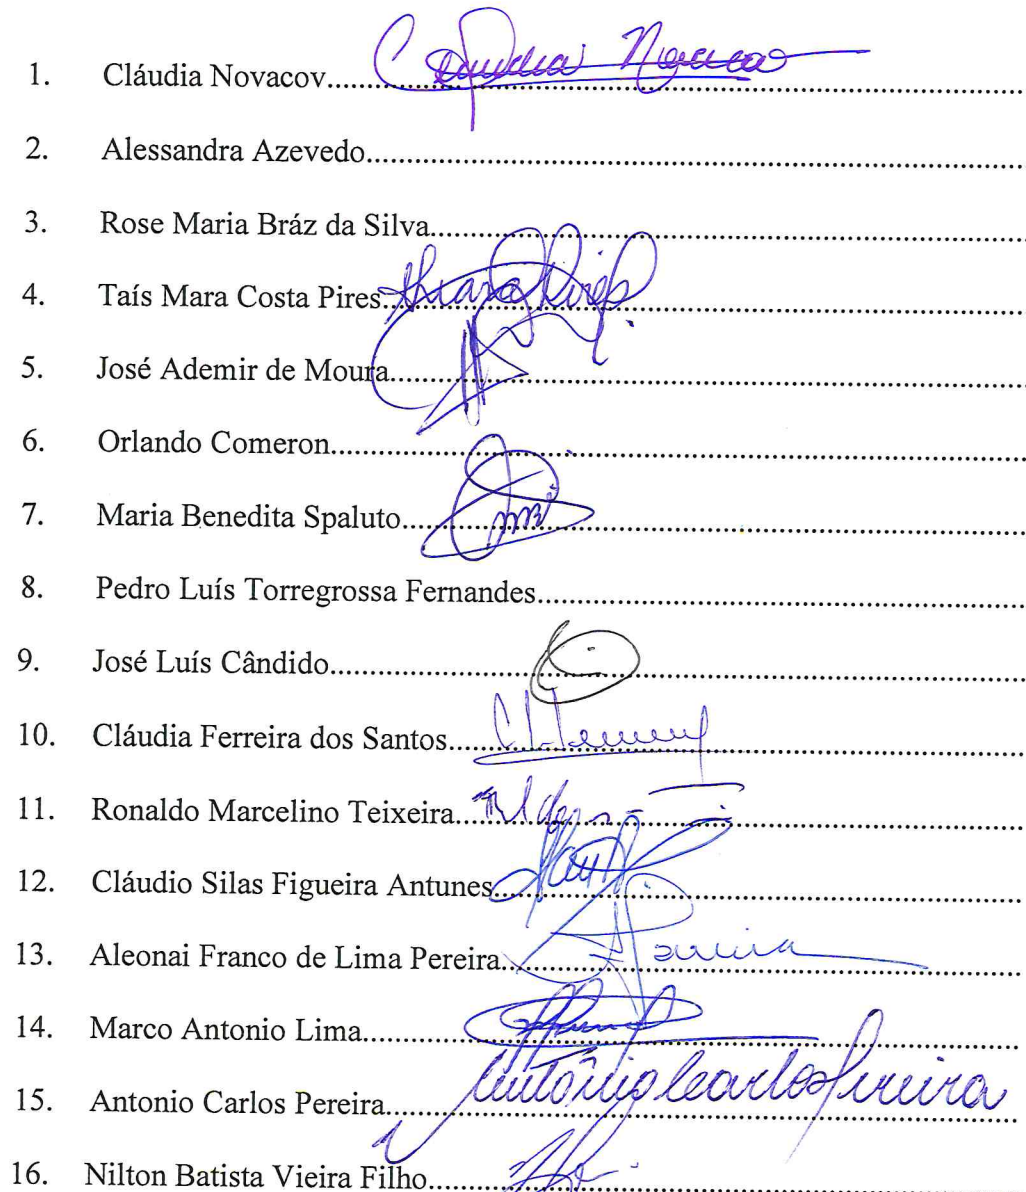 1. Cláudia Novacov.......... Claudia Novacov
2. Alessandra Azevedo..........
3. Rose Maria Bráz da Silva..........
4. Taís Mara Costa Pires..........
5. José Ademir de Moura..........
6. Orlando Comeron..........
7. Maria Benedita Spaluto..........
8. Pedro Luís Torregrossa Fernandes..........
9. José Luís Cândido..........
10. Cláudia Ferreira dos Santos..........
11. Ronaldo Marcelino Teixeira..........
12. Cláudio Silas Figueira Antunes..........
13. Aleonai Franco de Lima Pereira..........
14. Marco Antonio Lima..........
15. Antonio Carlos Pereira.......... Antônio Carlos Pereira
16. Nilton Batista Vieira Filho..........